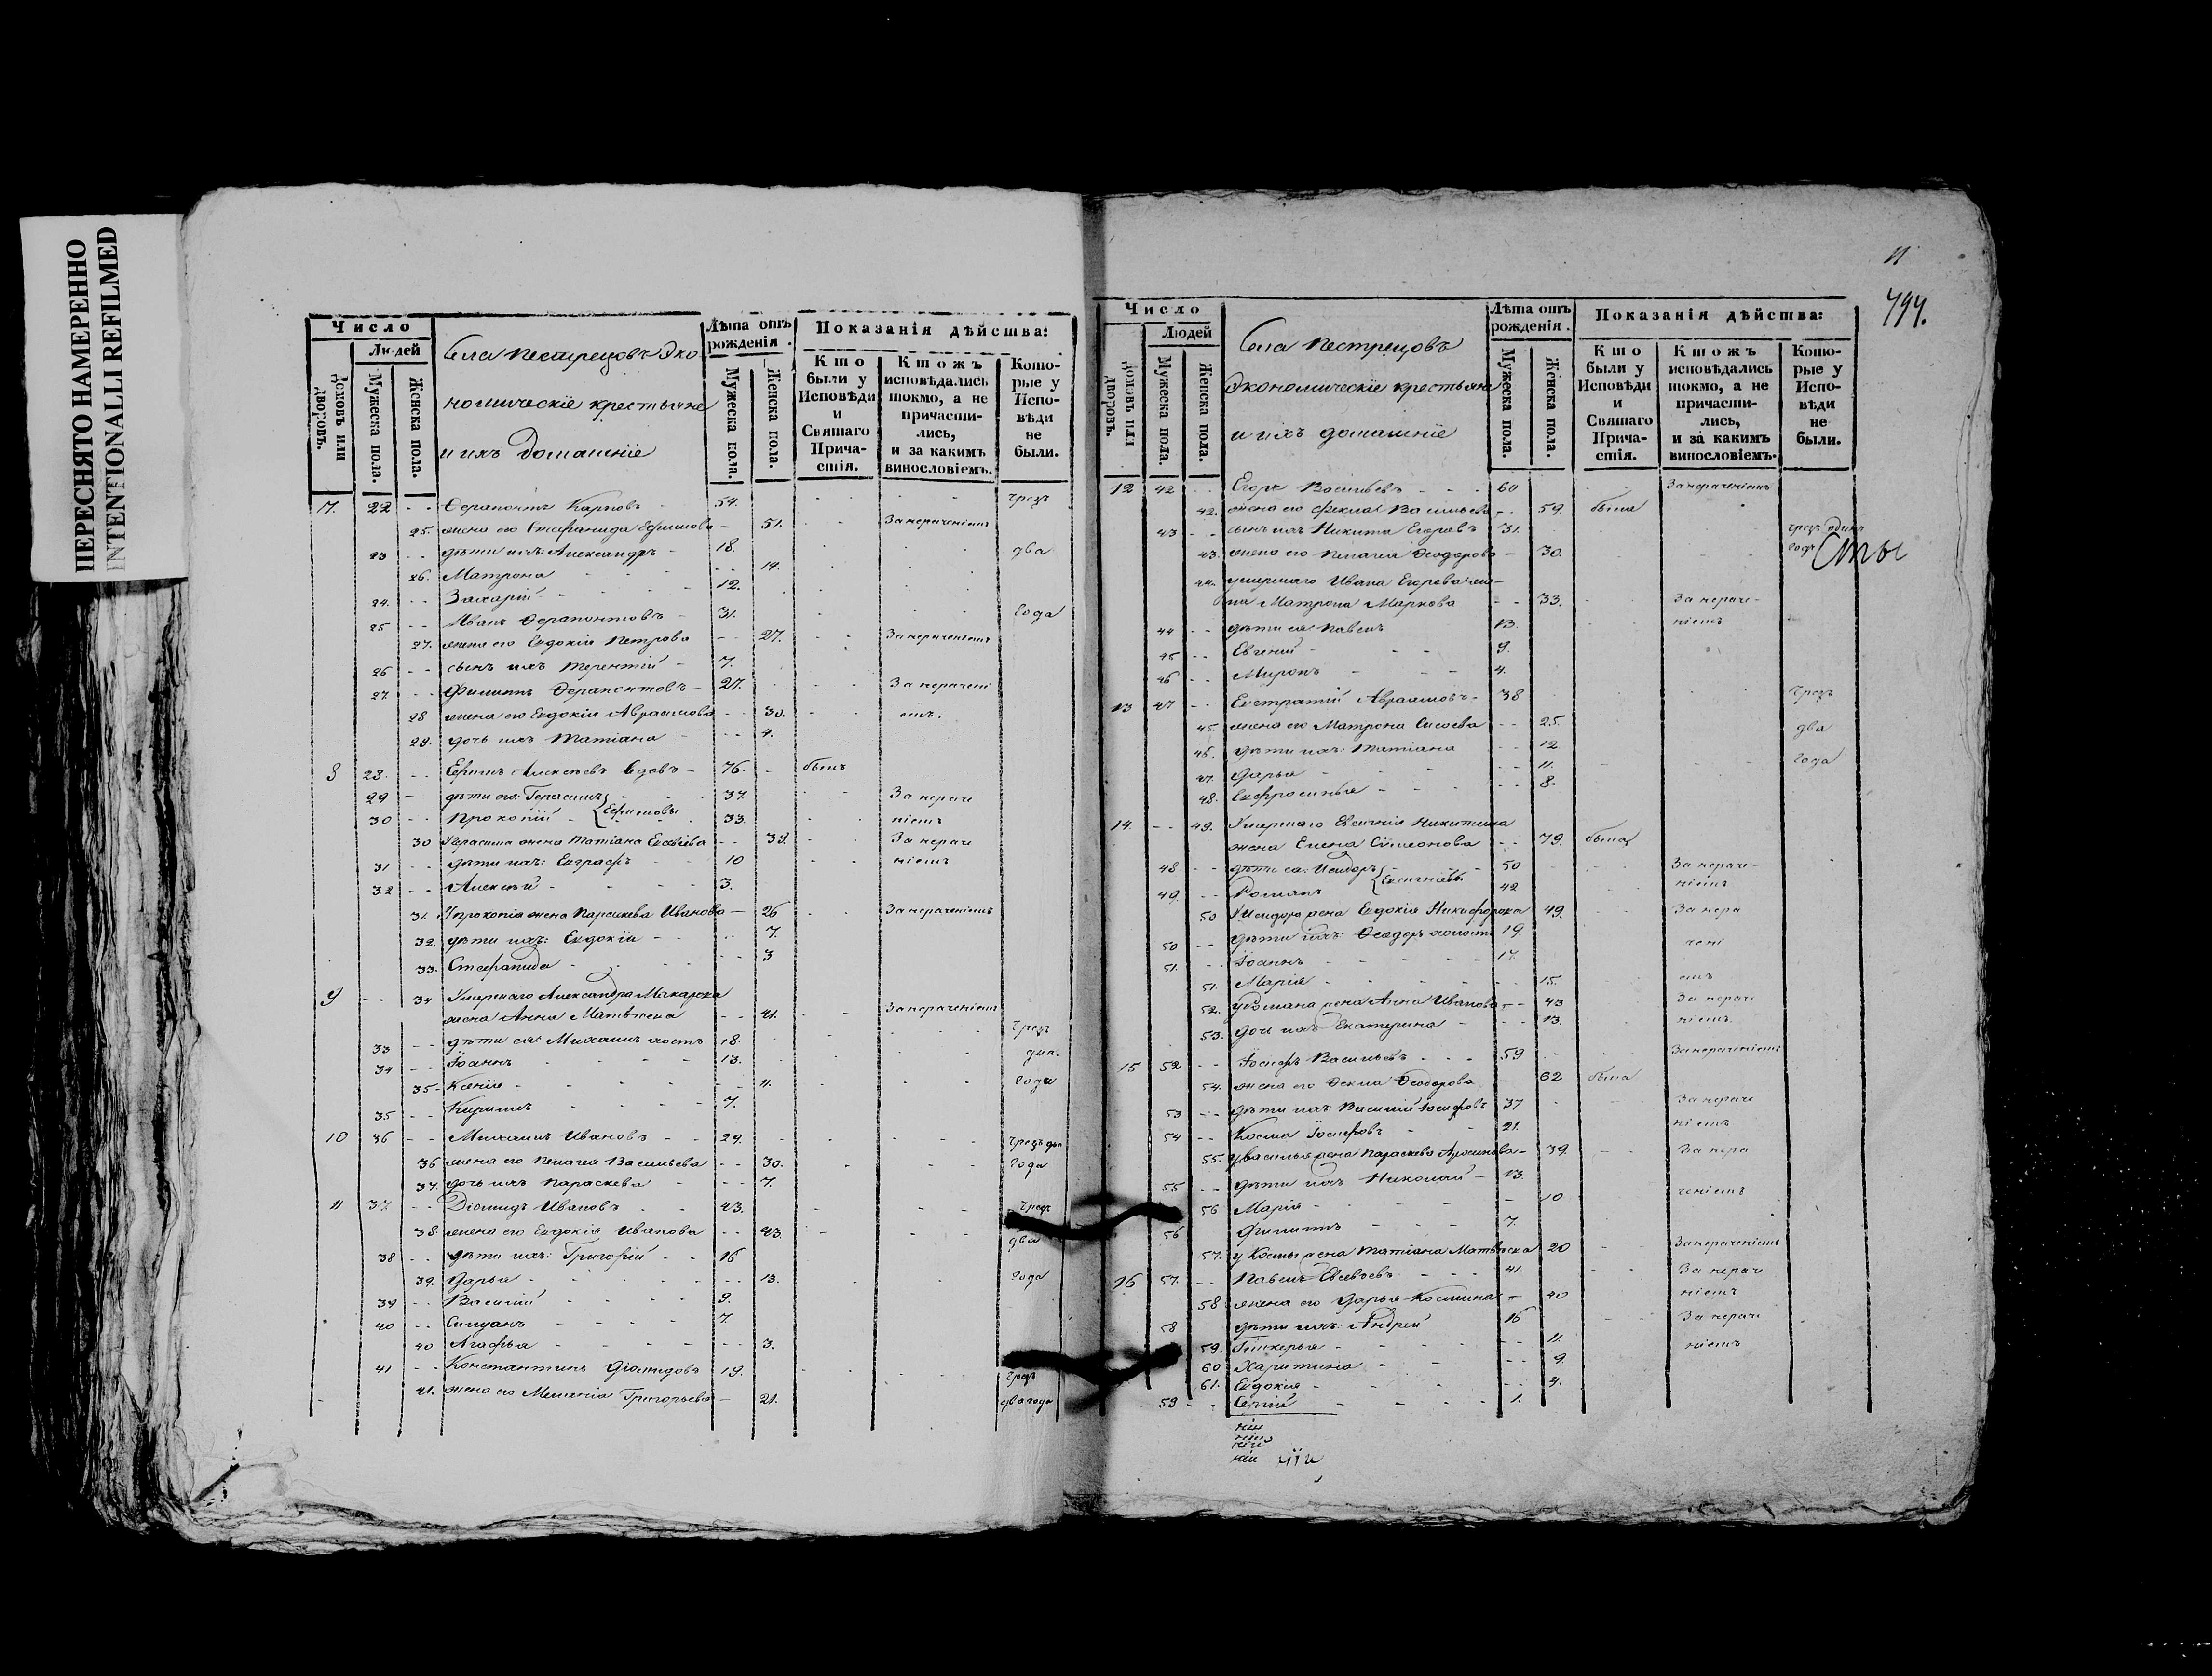 ПЕРЕСНЯТО НАМЕРЕННО
INTENTIONALLI REFILMED
Число
Людей
Домовъ или дворовъ.
Мужеска пола.
Женска пола.
Села Пестрецовъ Эко
номическіе крестьяне
и ихъ домашніе
Лѣта отъ рожденія.
Мужеска пола.
Женска пола.
Показанія дѣйства:
Кто были у Исповѣди и Святаго Прича-стія.
Ктожъ исповѣдались токмо, а не причасти-лись, и за какимъ винословіемъ.
Кото-рые у Испо-вѣди не были.
7. 22 - - Ѳерапонтъ Карповъ - 54. чрезъ
25. жена его Стефанида Ефимова - 51. За нераченіемъ
23 - - дѣти ихъ: Александръ - 18. два
26. Матрона - - 14.
24. - - Захарій - - 12.
25 - - Иванъ Ѳерапонтовъ - 31. года
27. жена его Евдокія Петрова - - 27. За нераченіемъ
26 - - сынъ ихъ Терентій - 7.
27. - - Филиппъ Ѳерапонтовъ - 27. За нерачені
28 жена его Евдокія Авраамова - - 30. емъ.
29. дочь ихъ Татіана - - - 4.
8 28. - - Ефимъ Алексѣевъ вдовъ - 76. - былъ
29 - дѣти его: Герасимъ 37. За нераче
30 - - Прокопій - Ефимовы 33. ніемъ
30 Герасима жена Татіана Евсевіева - - 38. За нераче
31 - - дѣти ихъ: Евграфъ - - 10 ніемъ
32 - - Алексѣй - - - 3.
31. У Прокопія жена Параскева Иванова - 26 За нераченіемъ
32. дѣти ихъ: Евдокія - - - 7.
33. Стефанида - - - - 3
9 - - 34 Умершаго Александра Макарова
жена Анна Матвѣева - - 41. За нераченіемъ
33 - - дѣти ея: Михаилъ холостъ 18. чрезъ
34 - - Іоаннъ - - 13. два.
35- Ксенія - - - 11. года
35 - - Кирилъ - - - 7.
10 36 - - Михаилъ Ивановъ - - 29. чрезъ два
36 жена его Пелагея Васильева - - 30. года
37. дочь ихъ Параскева - - - 7.
11 37. - - Діомидъ Ивановъ - - 43. чрезъ
38 жена его Евдокія Иванова - - 43. два
38 - - дѣти ихъ: Григорій - - 16
39. Дарья - - - - 13. года
39 - - Василій - - - 9.
40 - - Силуанъ - - - 7.
40 Агафья - - - - 3.
41 - - Константинъ Діомидовъ 19. чрезъ
41. жена его Меланія Григорьева - 21. два года
11
Число
Людей
Домовъ или дворовъ.
Мужеска пола.
Женска пола.
Села Пестрецовъ
Экономическіе крестьяне
и ихъ домашніе
Лѣта отъ рожденія.
Мужеска пола.
Женска пола.
Показанія дѣйства:
Кто были у Исповѣди и Святаго Прича-стія.
Ктожъ исповѣдались токмо, а не причасти-лись, и за какимъ винословіемъ.
Кото-рые у Испо-вѣди не были.
12 42 - - Егоръ Васильевъ - - - 60 За нераченіемъ
42. жена его Фекла Васильева - - 59. была
43 - - сынъ ихъ Никита Егоровъ 31. чрезъ одинъ
43. жена его Пелагея Ѳеодорова - 30. годъ
44. умершаго Ивана Егорова же-
на Матрона Маркова - - 33. За нераче-
44 - - дѣти ея: Павелъ 13. ніемъ
45 - - Евгеній - - - 9.
46 - - Миронъ - - - 4.
13 47 - - Евстратій Авраамовъ - 38 чрезъ
45. жена его Матрона Сысоева - - 25. два
46. дѣти ихъ: Татіана - - 12
47. Дарья - - - - 11. года
48. Евфросинья - - - - 8.
14. - - 49. Умершаго Евсигнія Никитина
жена Елена Сімеонова - - 79. была
48 - - дѣти ея: Исидоръ - - 50 За нераче-
49. - - Романъ Евсигнѣевы 42 ніемъ
50 У Исидора жена Евдокія Никифорова 49. За нера
50 - - дѣти ихъ: Ѳеодоръ холостъ 19. чені
51. - - Іоаннъ - - - 17.
51. Марія - - - - 15. емъ
52. у Романа жена Анна Иванова - - 43 За нераче
53. дочь ихъ Екатерина - - - 13. ніемъ.
15 52 - - Іосифъ Васильевъ - - - 59 За нераченіемъ
54. жена его Ѳекла Ѳеодорова - 62 была
53 - - дѣти ихъ Василій Іосифовъ 37 За нераче
54 - - Косма Іосифовъ - - 21. ніемъ
55. у Василья жена Параскева - 39. За нера
55 - - дѣти ихъ Николай - 13.
56 Марія - - - - 10 ченіемъ
56 Филиппъ - - - 7.
57. у Космы жена Татіана Матвѣева 20 За нераченіемъ
16 57. - - Павелъ Евсевьевъ - - - 41. За нераче
58 жена его Дарья Космина - 40 ніемъ
58 дѣти ихъ: Андрей 16 За нераче
59. Гликерья - - - - 11. ніемъ
60 Харитина - - - - 9.
61. Евдокія - - - - 4.
59 - - Сергій - - - - 1.